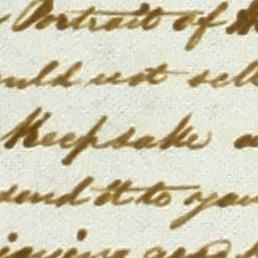 Portrait of
uld not sell
Keepsake a
send it to you